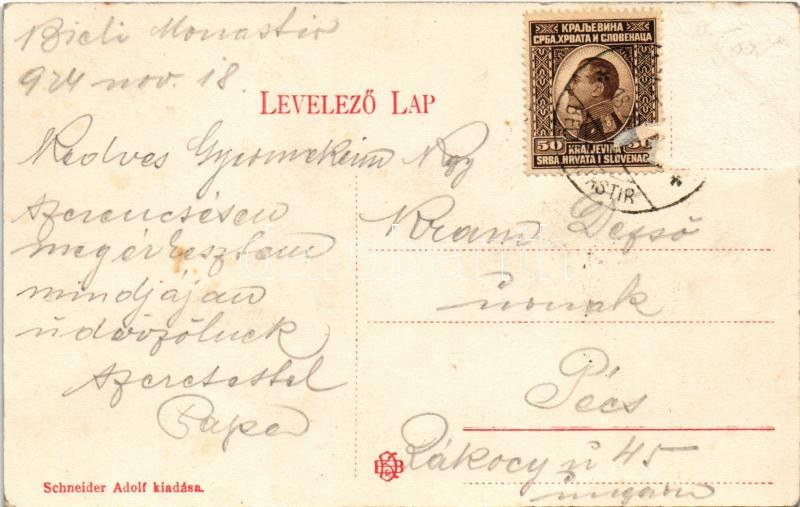 Bieli Monastir
924 nov. 18.
LEVELEZŐ LAP
КРАЉЕВИНА
СРБА, ХРВАТА И СЛОВЕНАЦА
50 KRALJEVINA 50
SRBA, HRVATA I SLOVENAC
Kedves Gyermekeim
szerencsésen
megérkeztem
mindjáján
üdvözöluek
szeretettel
Papa
Kram Dezső
úrnak
Pécs
Rákocy ú 45
Ungarn
Schneider Adolf kiadása.
darabanth